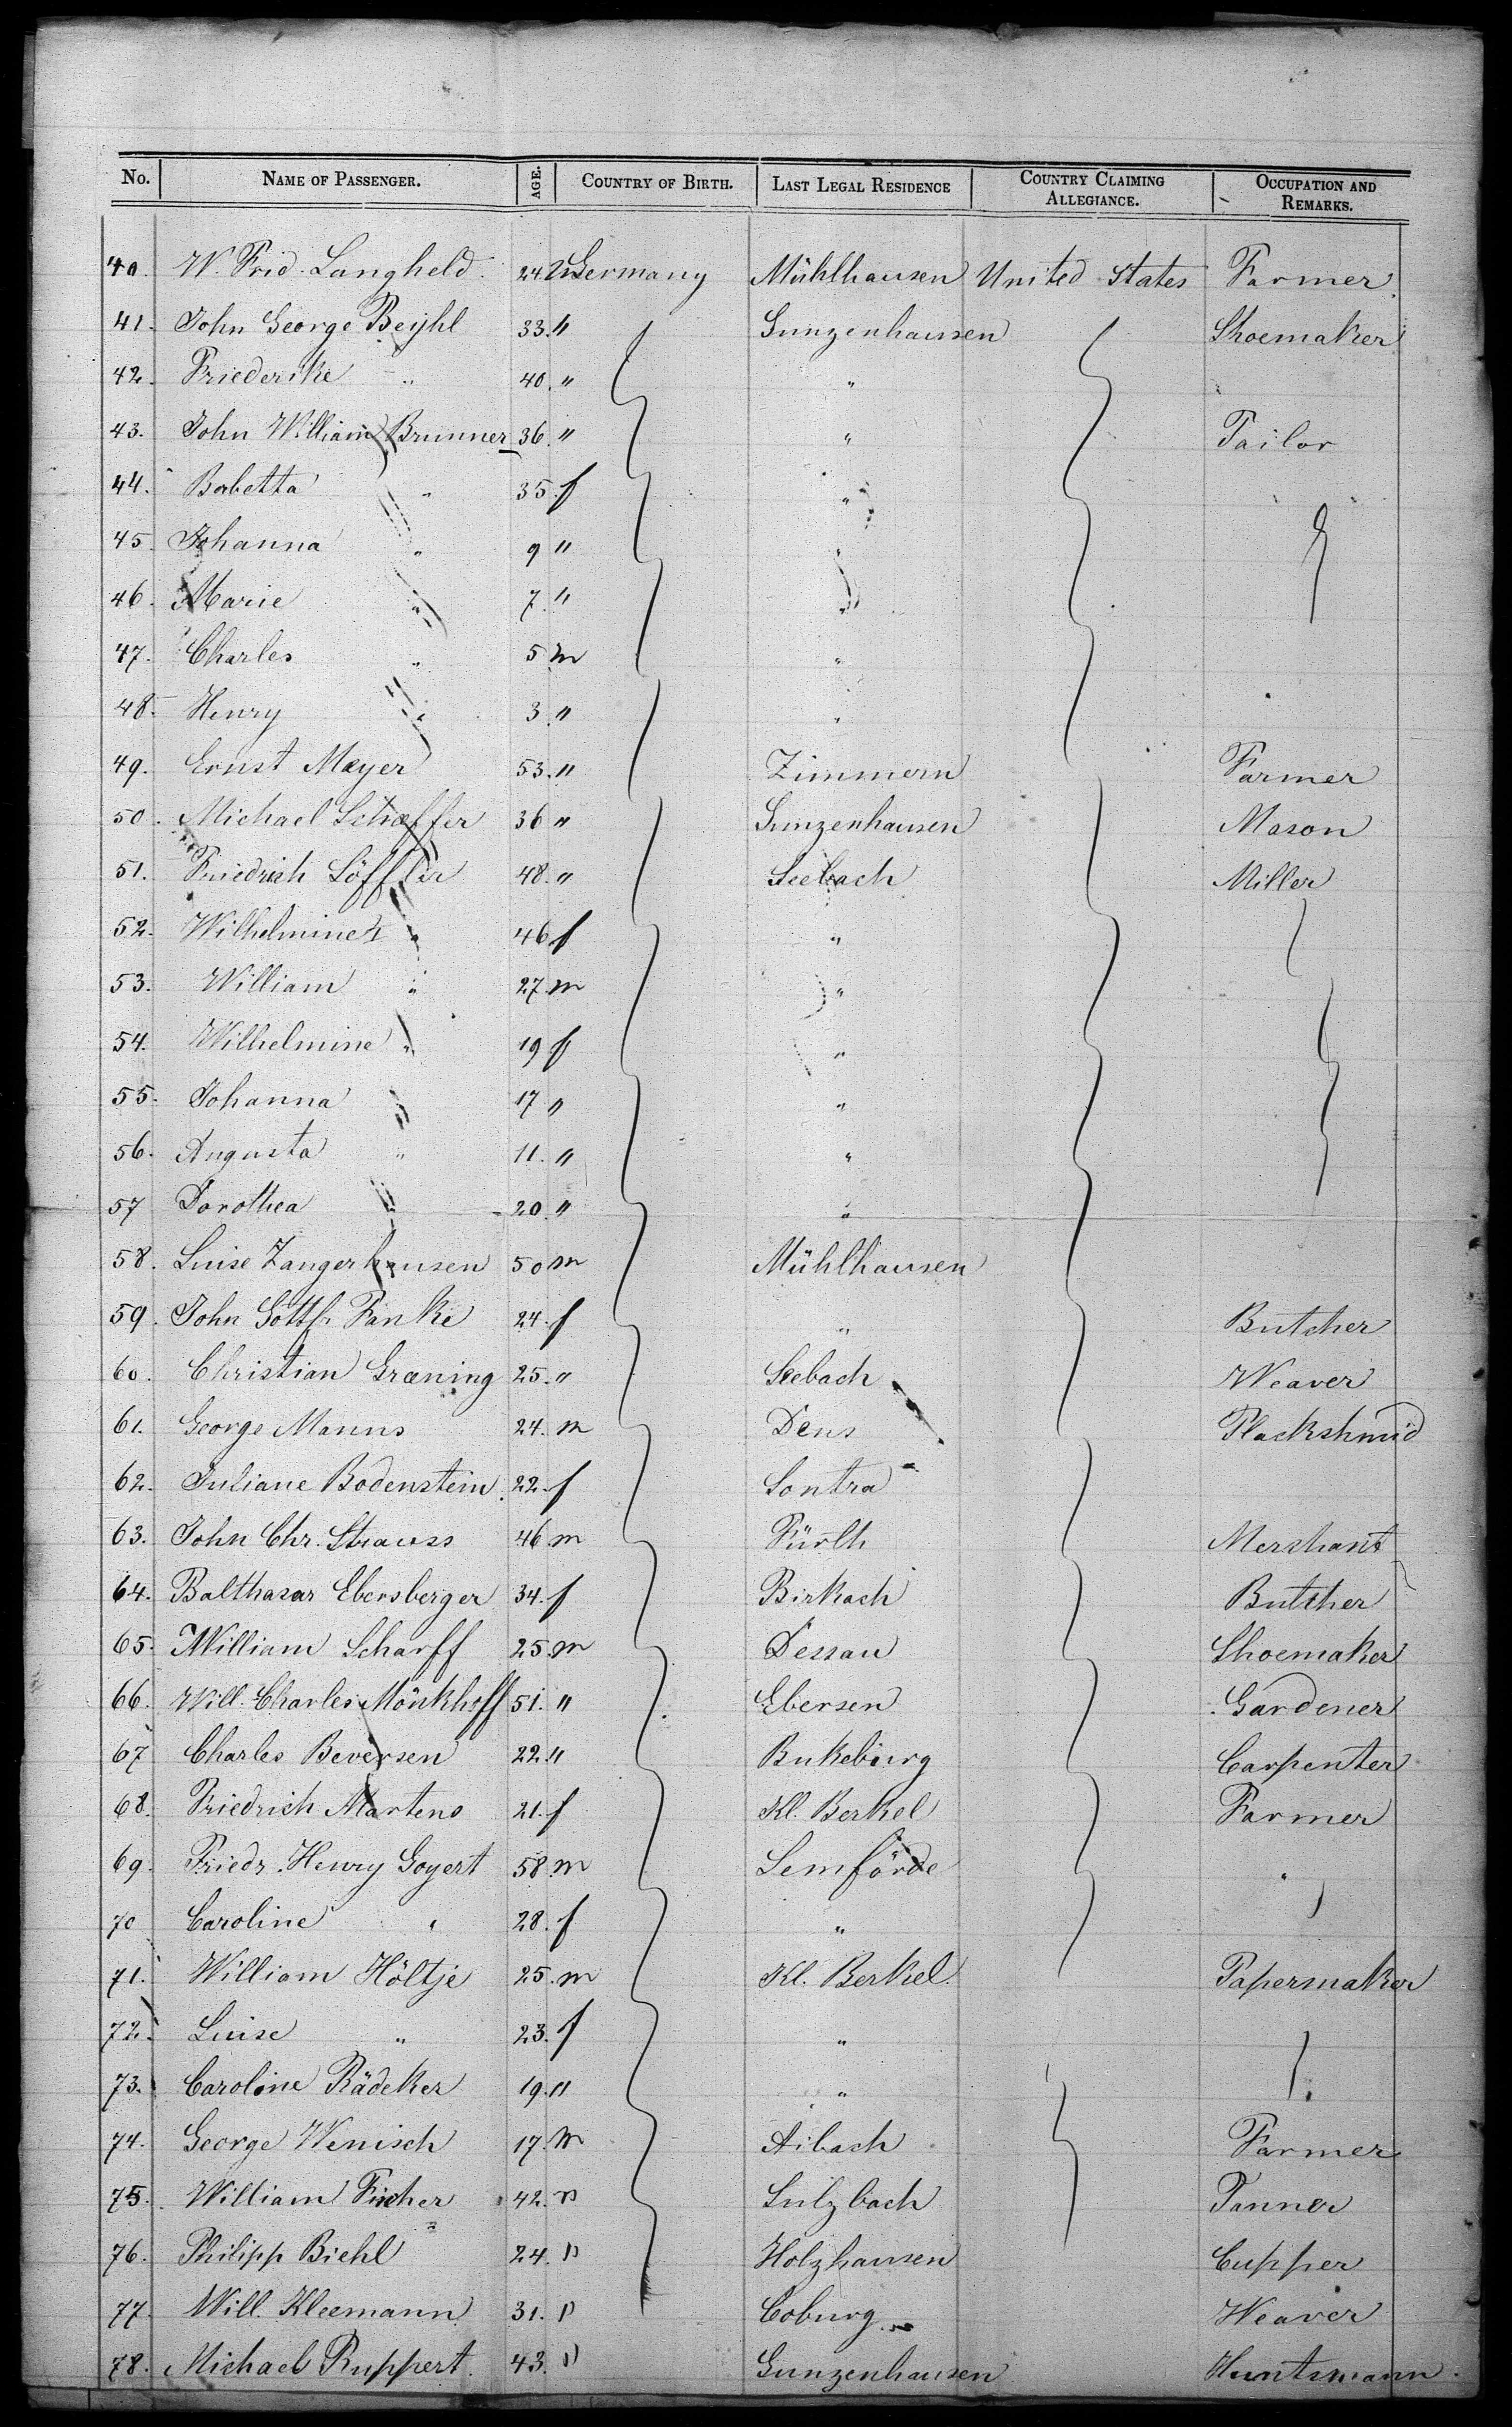 No. NAME OF PASSENGER. AGE. COUNTRY OF BIRTH. LAST LEGAL RESIDENCE COUNTRY CLAIMING ALLEGIANCE. OCCUPATION AND REMARKS.
40. W. Frid. Langheld. 24 m Germany Mühlhausen United States Farmer
41. John George Beyhl 33. " Gunzenhausen Shoemaker
42. Friederike " 40. " "
43. John William Brunner 36. " " Tailor
44. Babetta " 35. f "
45. Johanna " 9 " "
46. Marie " 7. " "
47. Charles " 5 m "
48. Henry " 3. " "
49. Ernst Meyer 53. " Zimmern Farmer
50. Michael Schaffer 36 " Gunzenhausen Mason
51. Friedrich Löffler 48. " Seebach Miller
52. Wilhelmine " 46 f "
53. William " 27. m "
54. Wilhelmine " 19 f "
55. Johanna " 17 " "
56. Augusta " 11. " "
57 Dorothea " 20. " "
58. Luise Zangerhausen 50 m Mühlhausen
59. John Gottfr. Fanke 24. f " Butcher
60. Christian Græning 25. " Seebach Weaver
61. George Manns 24. m Dens Plackshmid
62. Juliane Bodenstein. 22. f Sontra
63. John Chr. Strauss 46 m Fürth Merchant
64. Balthasar Ebersberger 34. f Birkach Butcher
65. William Scharff 25. m Dessau Shoemaker
66. Will. Charles Mönkhoff 51. " Ebersen Gardener
67 Charles Beversen 22. " Bukeburg Carpenter
68. Friedrich Martens 21. f Kl. Berkel Farmer
69. Friedr. Henry Goyert 58. m Lemförde "
70 Caroline " 28. f "
71. William Höltje 25. m Kl. Berkel. Papermaker
72. Luise " 23. f "
73. Caroline Rädeker 19. " "
74. George Wenisch 17. m Aibach Farmer
75. William Fischer 42. " Sulzbach Tanner
76. Philipp Biehl 24. " Holzhausen Cupper
77. Will. Kleemann 31. " Coburg Weaver
78. Michael Ruppert. 43. " Gunzenhausen Huntsmann.